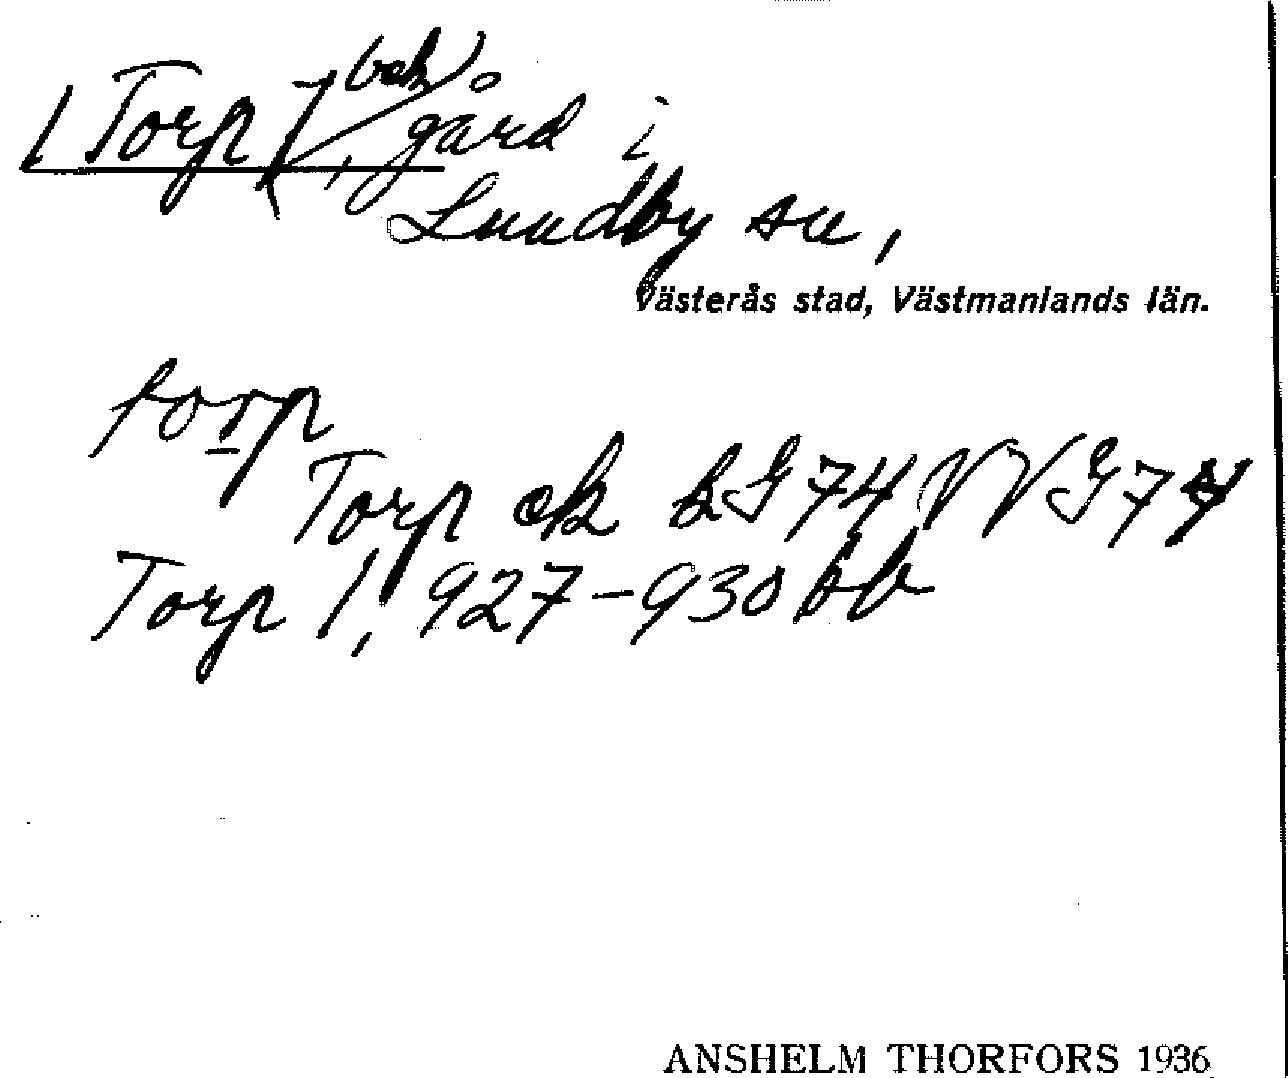 Torp (bek), gård i
Lundby sn,
Västerås stad, Västmanlands län.
torp
Torp ek LG 74 VVG 74
Torp 1, 927-930 bb
ANSHELM THORFORS 1936